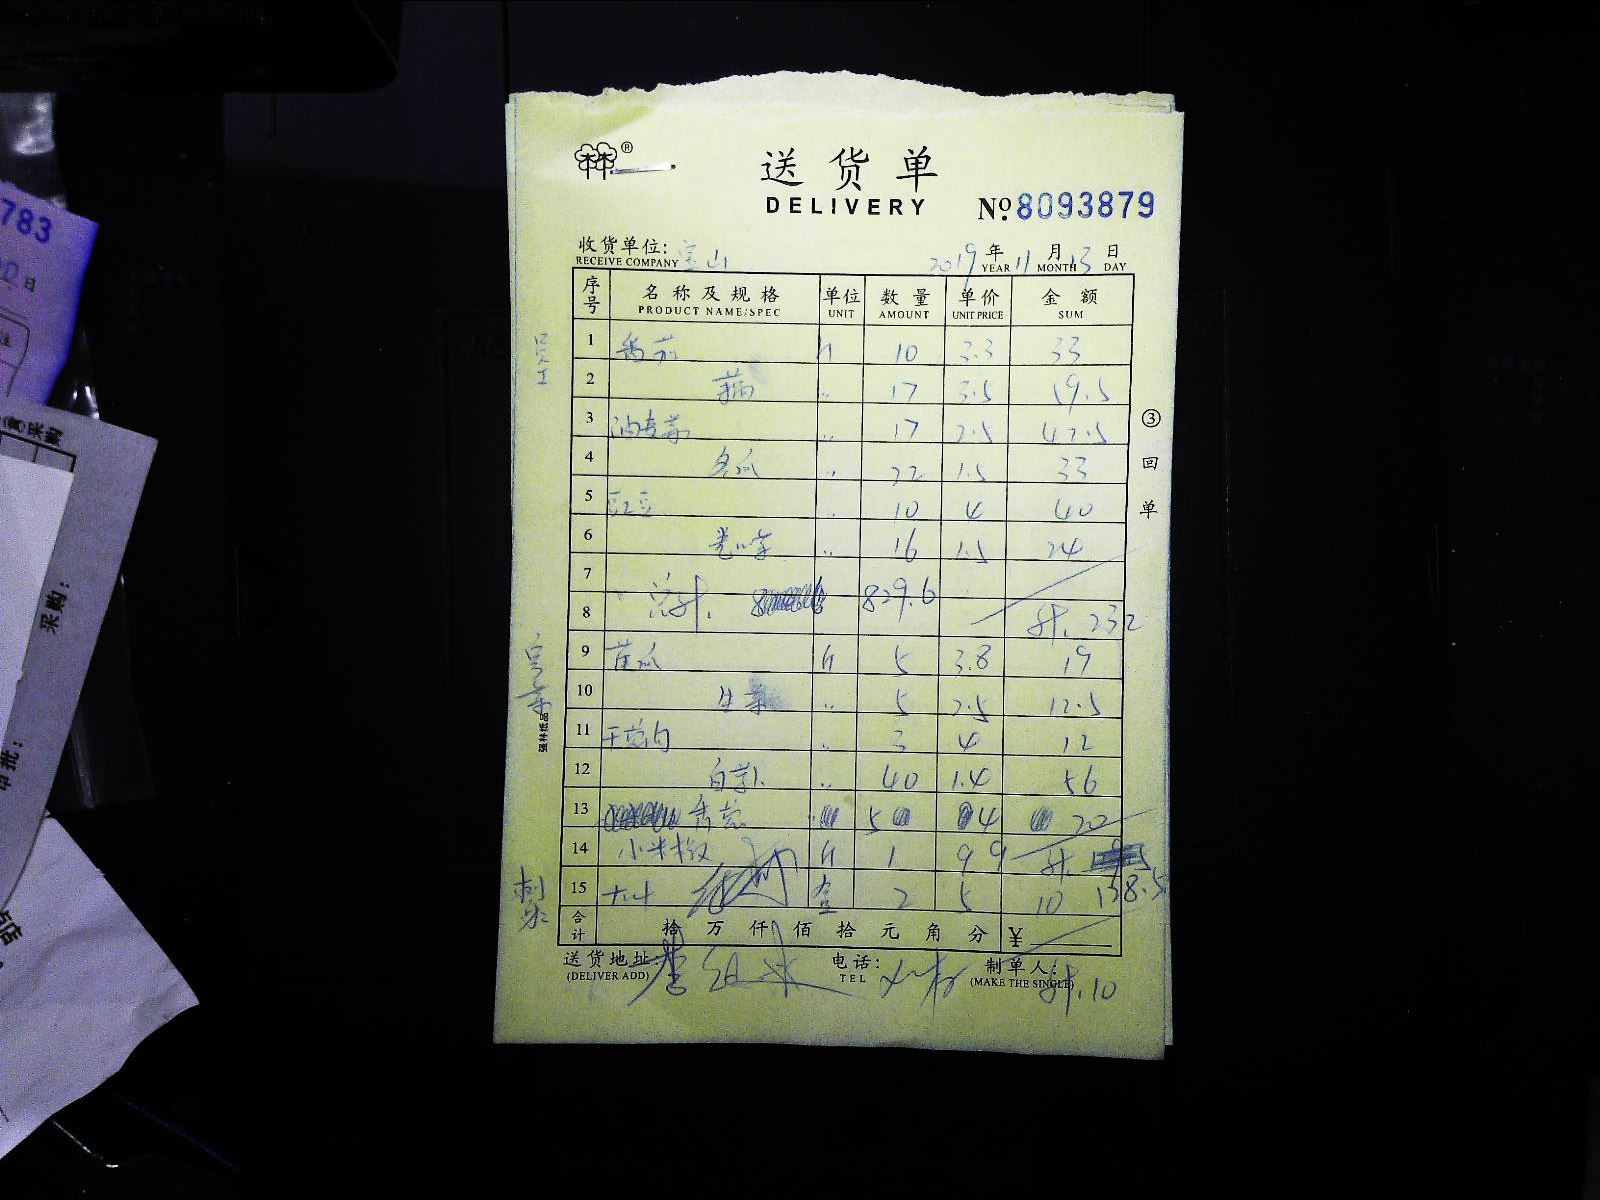 ®
送货单
DELIVERY
№ 8093879
收货单位: 宝山 2019年11月13日
RECEIVE COMPANY YEAR MONTH DAY
序号 名称及规格 单位 数量 单价 金额
PRODUCT NAME/SPEC UNIT AMOUNT UNIT PRICE SUM
员工
1 番茄 斤 10 3.3 33
2 17 3.5 59.5
3 油麦菜 〃 17 2.5 42.5
4 冬瓜 〃 22 1.5 33
5 豇豆 〃 10 4 40
6 〃 16 1.5 24
7
总计. 829.6
8 计. 232
9 黄瓜 斤 5 3.8 19
10 生菜 〃 5 2.5 12.5
11 〃 3 4 12
12 〃 40 1.4 56
13 香葱 5 4 20
14 小米椒 斤 1 9 9 计.
138.5
15 2 5 10
合计 拾万仟佰拾元角分 ¥
送货地址: 电话: 制单人:
(DELIVER ADD) TEL (MAKE THE SINGLE)
计.10
③回单
强林纸品
783
日
采购
采购:
审批:
店